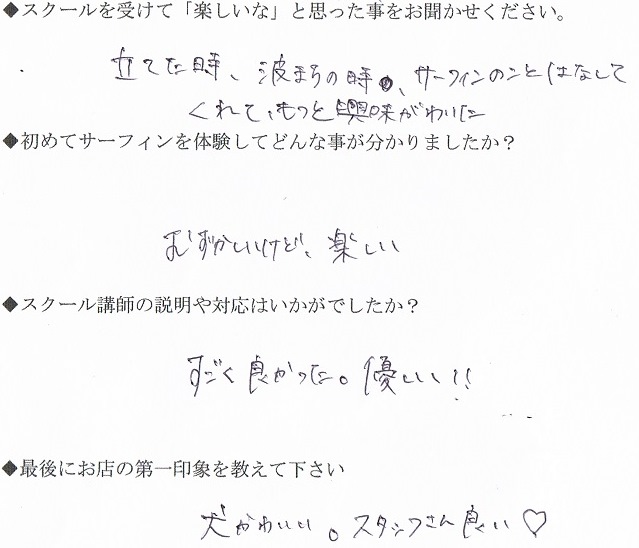 ◆スクールを受けて「楽しいな」と思った事をお聞かせください。
立てた時、波まちの時、サーフィンのことはなして
くれて、もっと興味がわいた
◆初めてサーフィンを体験してどんな事が分かりましたか？
むずかしいけど、楽しい
◆スクール講師の説明や対応はいかがでしたか？
すごく良かった。優しい!!
◆最後にお店の第一印象を教えて下さい
犬かわいい。スタッフさん良い♡